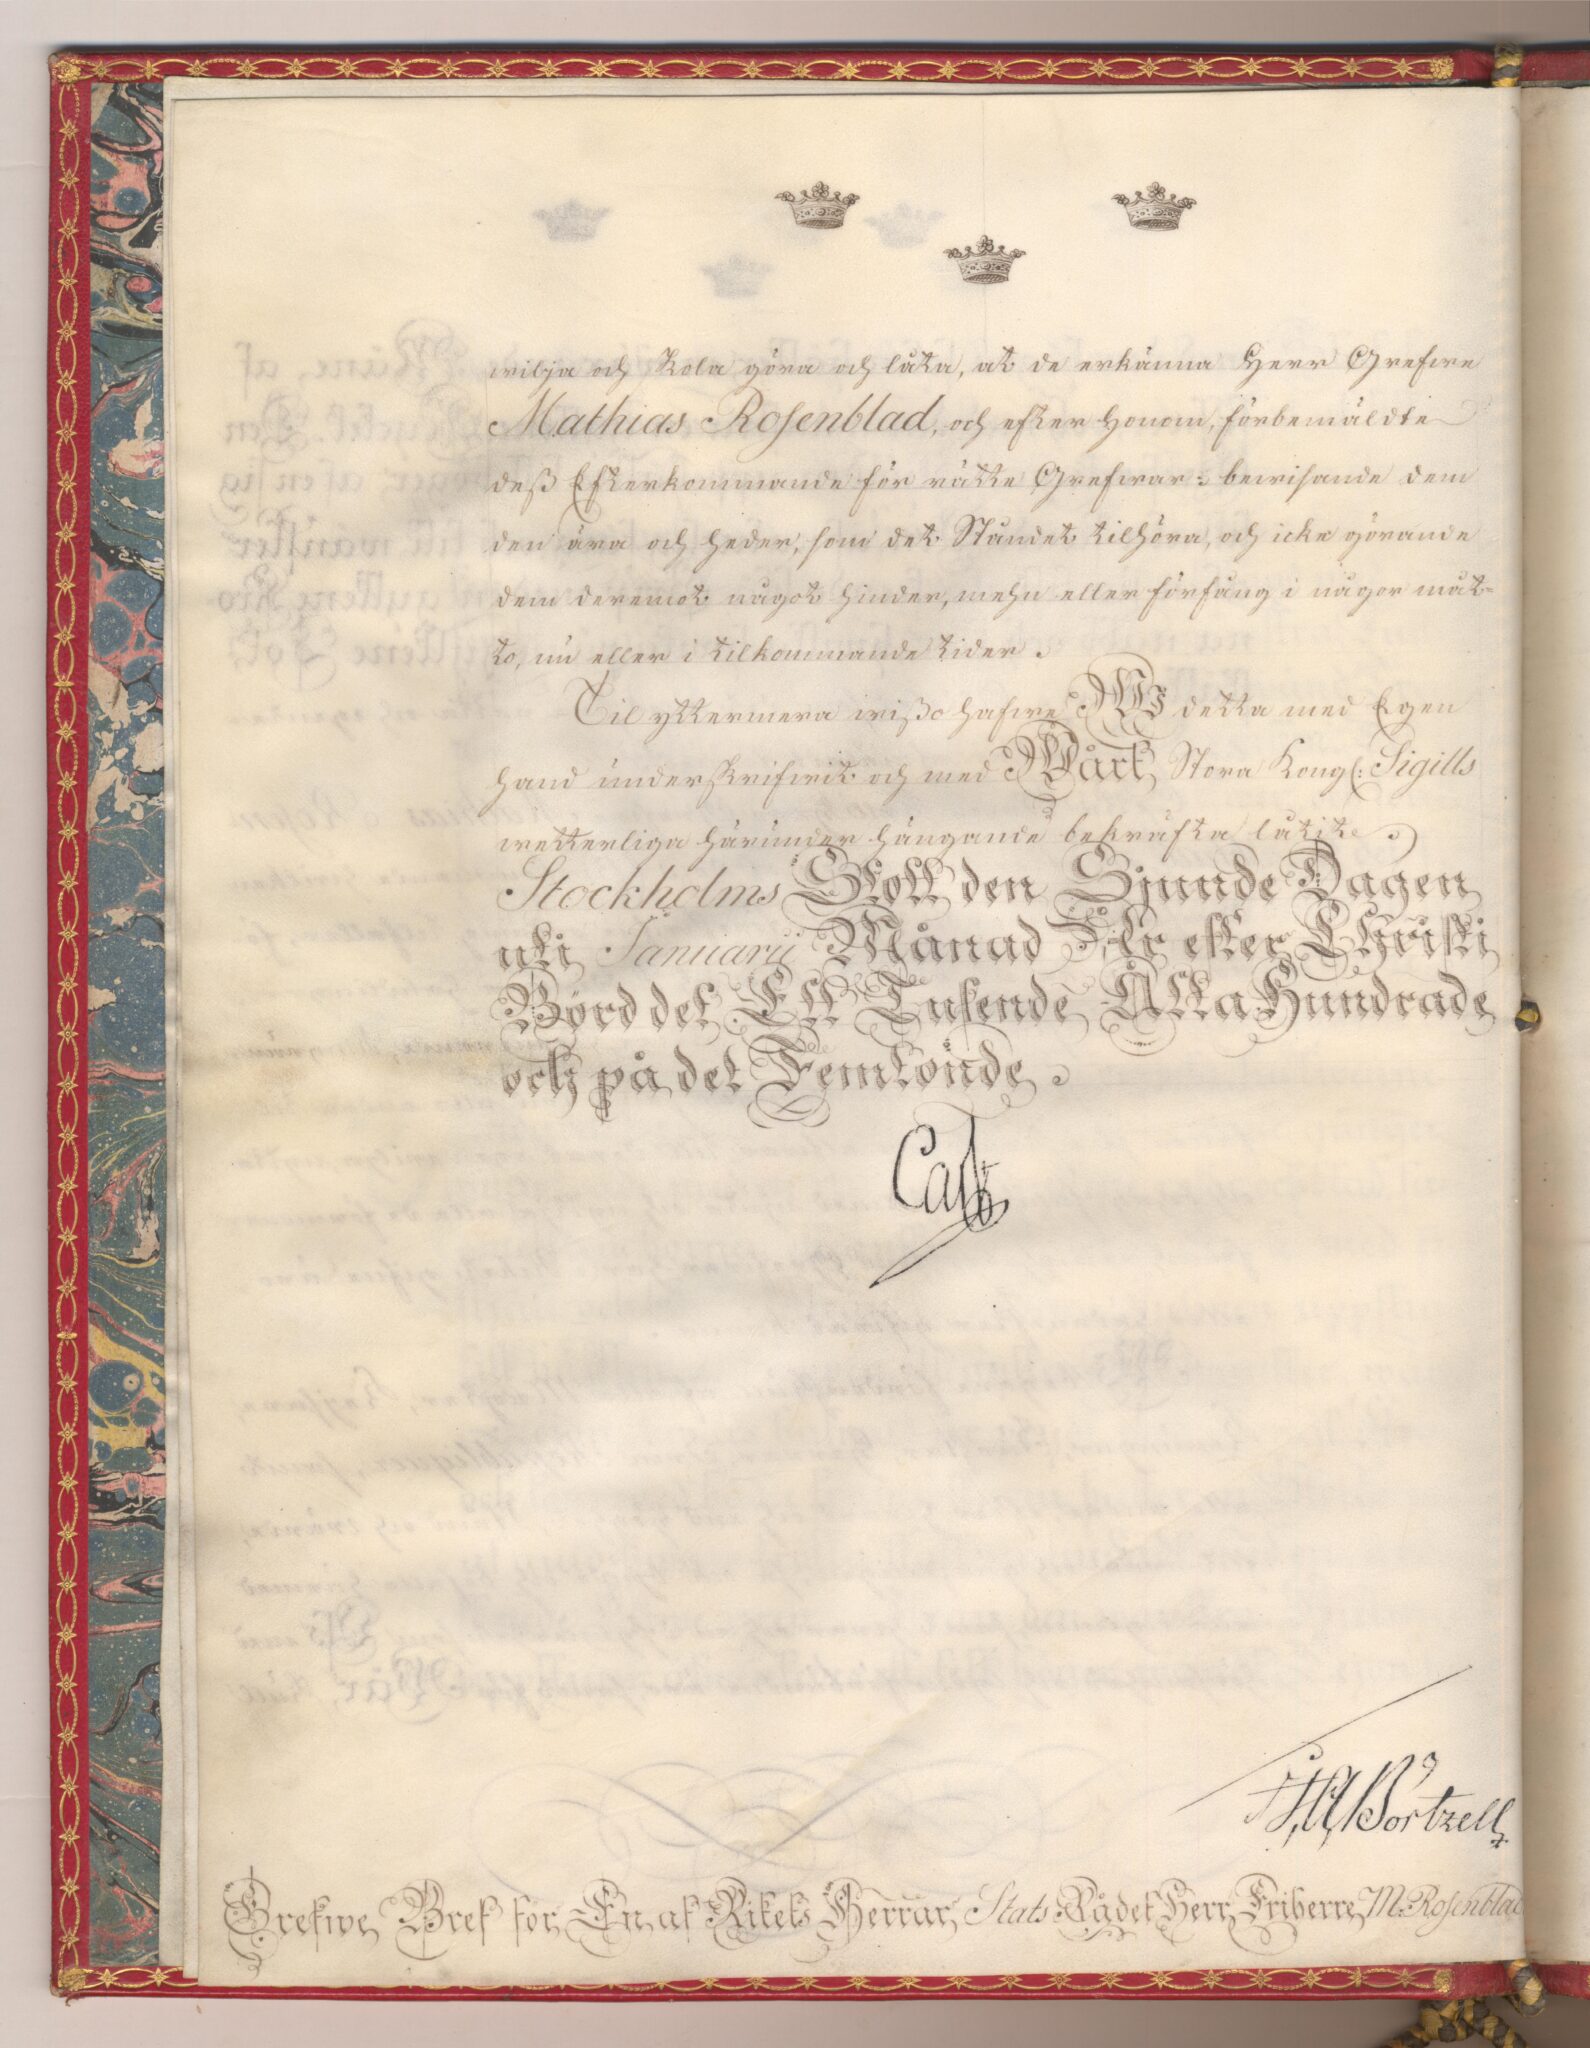 wilja och skola göra och låta, at de erkänna Herr Grefwe
Mathias Rosenblad, och efter honom, förbemäldte
deß Efterkommande för rätte Grefwar: bewisande dem
den ära och heder, som det Ståndet tilhöra, och icke görande
dem deremot något hinder, mehn eller förfång i någor måt-
to, nu eller i tilkommande tider.
Til yttermera wißo hafwe Wi detta med Egen
hand underskrifwit och med Wårt Stora Kongl: Sigills
wetterliga härunder hängande bekräfta låtit.
Stockholms Slott den Sjunde Dagen
uti Januarii Månad År efter Christi
Börd det Ett Tusende Åtta Hundrade
och på det Femtonde.
Carl
Börtzell
Grefwe Bref för En af Rikets Herrar Stats Rådet Herr Friherre M. Rosenblad